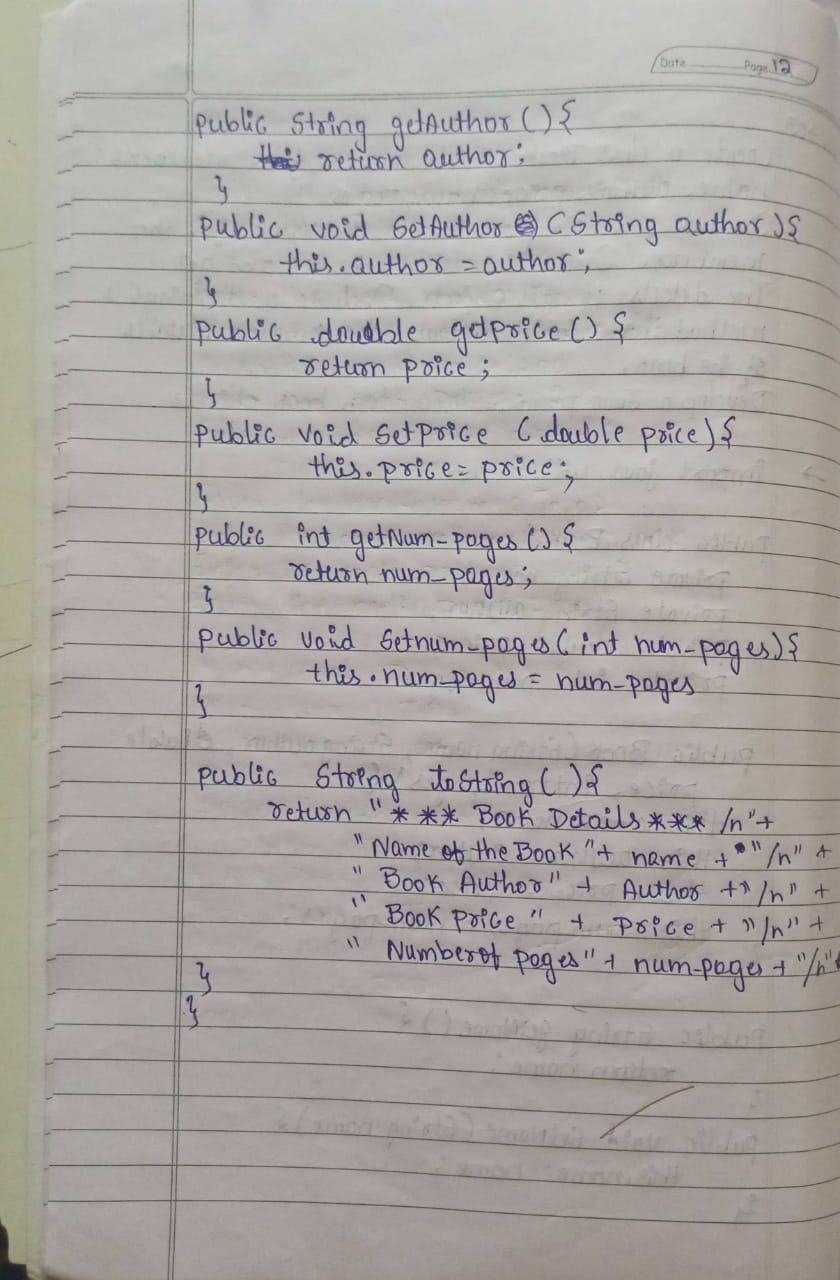 Date Page 12
public String getAuthor () {
return author;
}
public void SetAuthor (String author) {
this.author = author;
}
public double getprice () {
return price ;
}
public void Setprice (double price) {
this.price = price;
}
public int getNum-pages () {
return num-pages ;
}
public void Setnum-pages (int num-pages) {
this.num-pages = num-pages
}
public String toString () {
return "*** Book Details *** /n" +
"Name of the Book" + name + "/n" +
"Book Author" + Author + "/n" +
"Book price" + Price + "/n" +
"Number of pages" + num-pages + "/n"
}
}